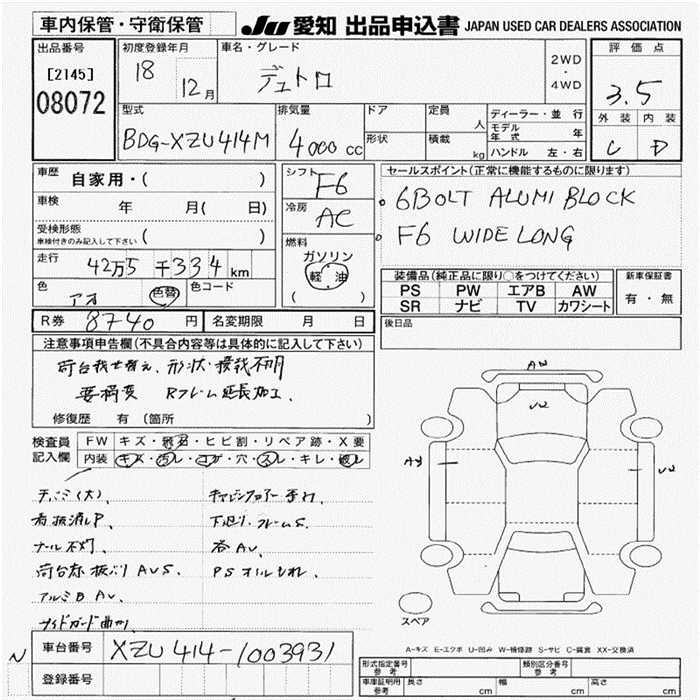 車内保管・守衛保管
JU 愛知 出品申込書 JAPAN USED CAR DEALERS ASSOCIATION
出品番号 初度登録年月 車名・グレード 2WD・4WD 評価点
[2145] 18 12月 デュトロ 3.5
08072
外装 内装
C D
型式 排気量 ドア 定員 人 ディーラー・並行
BDG-XZU414M 4000 cc 形状 積載 kg モデル年式 年
ハンドル 左・右
車歴 自家用・( )
シフト F6
セールスポイント(正常に機能するものに限ります)
6BOLT ALUMI BLOCK
F6 WIDE LONG
車検 年 月( 日)
冷房 AC
受検形態 ( )
車検付きのみ記入して下さい
燃料 ガソリン
軽油
( )
走行 42万5千334km
色 アオ 色替 色コード
装備品(純正品に限り○をつけてください) 新車保証書
PS PW エアB AW 有・無
SR ナビ TV カワシート
R券 8740円 名変期限 月 日
後日品
注意事項申告欄(不具合内容等は具体的に記入して下さい)
荷台載せ替え、形状・積載不明
要構変 Rフレーム延長加工、
修復歴 有(箇所 )
検査員記入欄 FW キズ・飛石・ヒビ割・リペア跡・X要
内装 キズ・汚レ・コゲ・穴・スレ・キレ・破レ
AW
U2
AY
U2
スペア
看板消しP、 下廻り・フレームS、
ナール不灯、 各AU、
PSオイルもれ、
アルミB AU、
サイドガード曲がり
A-キズ E-エクボ U-凹み W-補修跡 S-サビ C-腐食 XX-交換済
N 車台番号 XZU414-1003931
登録番号
形式指定番号 参考 類別区分番号 参考
車庫証明用 参考 長さ cm 幅 cm 高さ cm